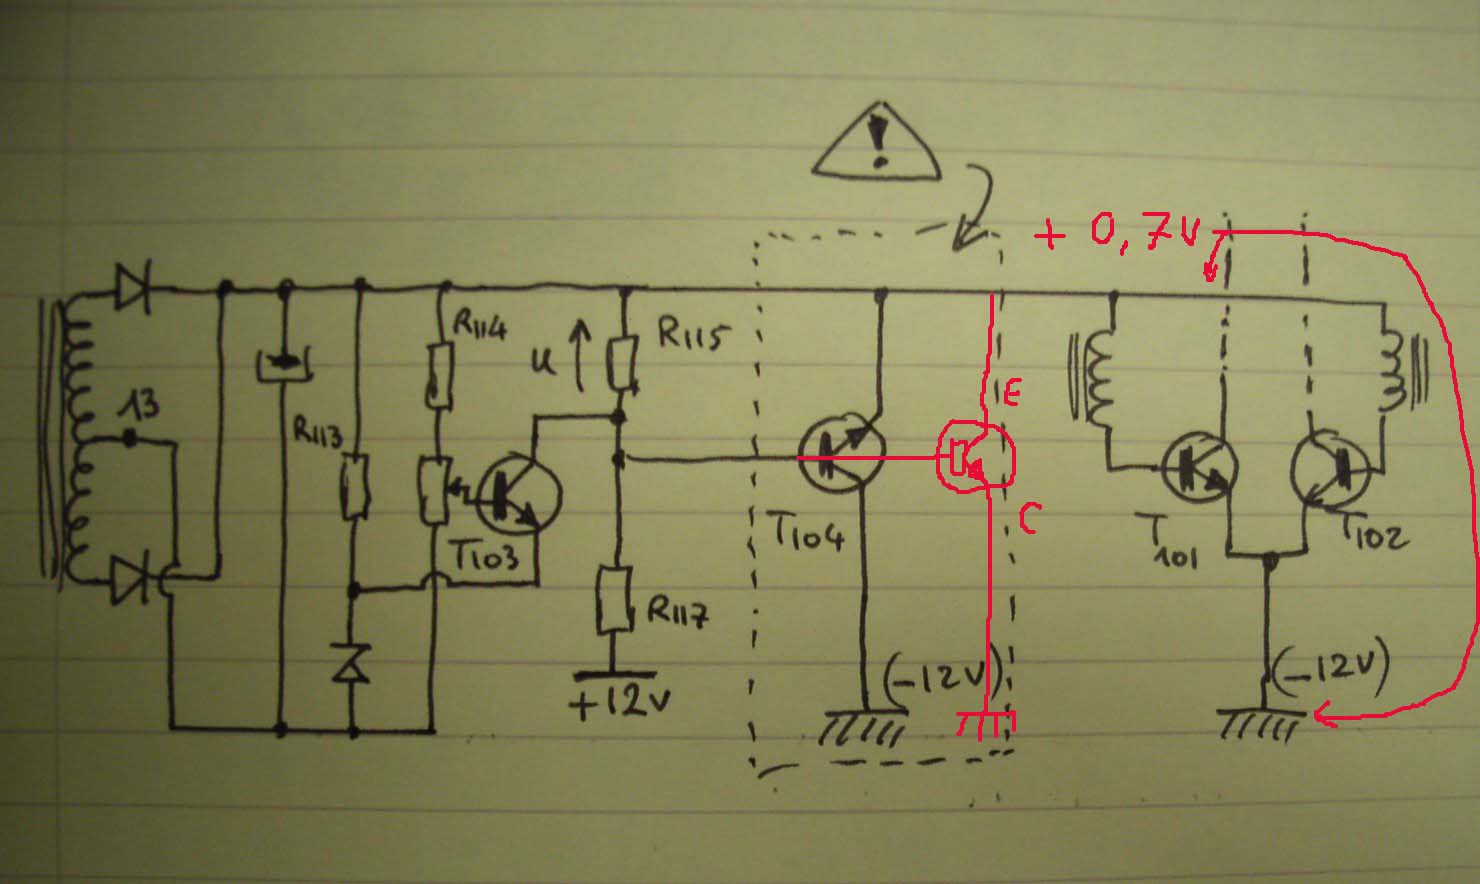 !
+ 0,7V
R114
u
R115
E
13
R113
C
T103
T104
T101
T102
R117
(-12V)
(-12V)
+12V